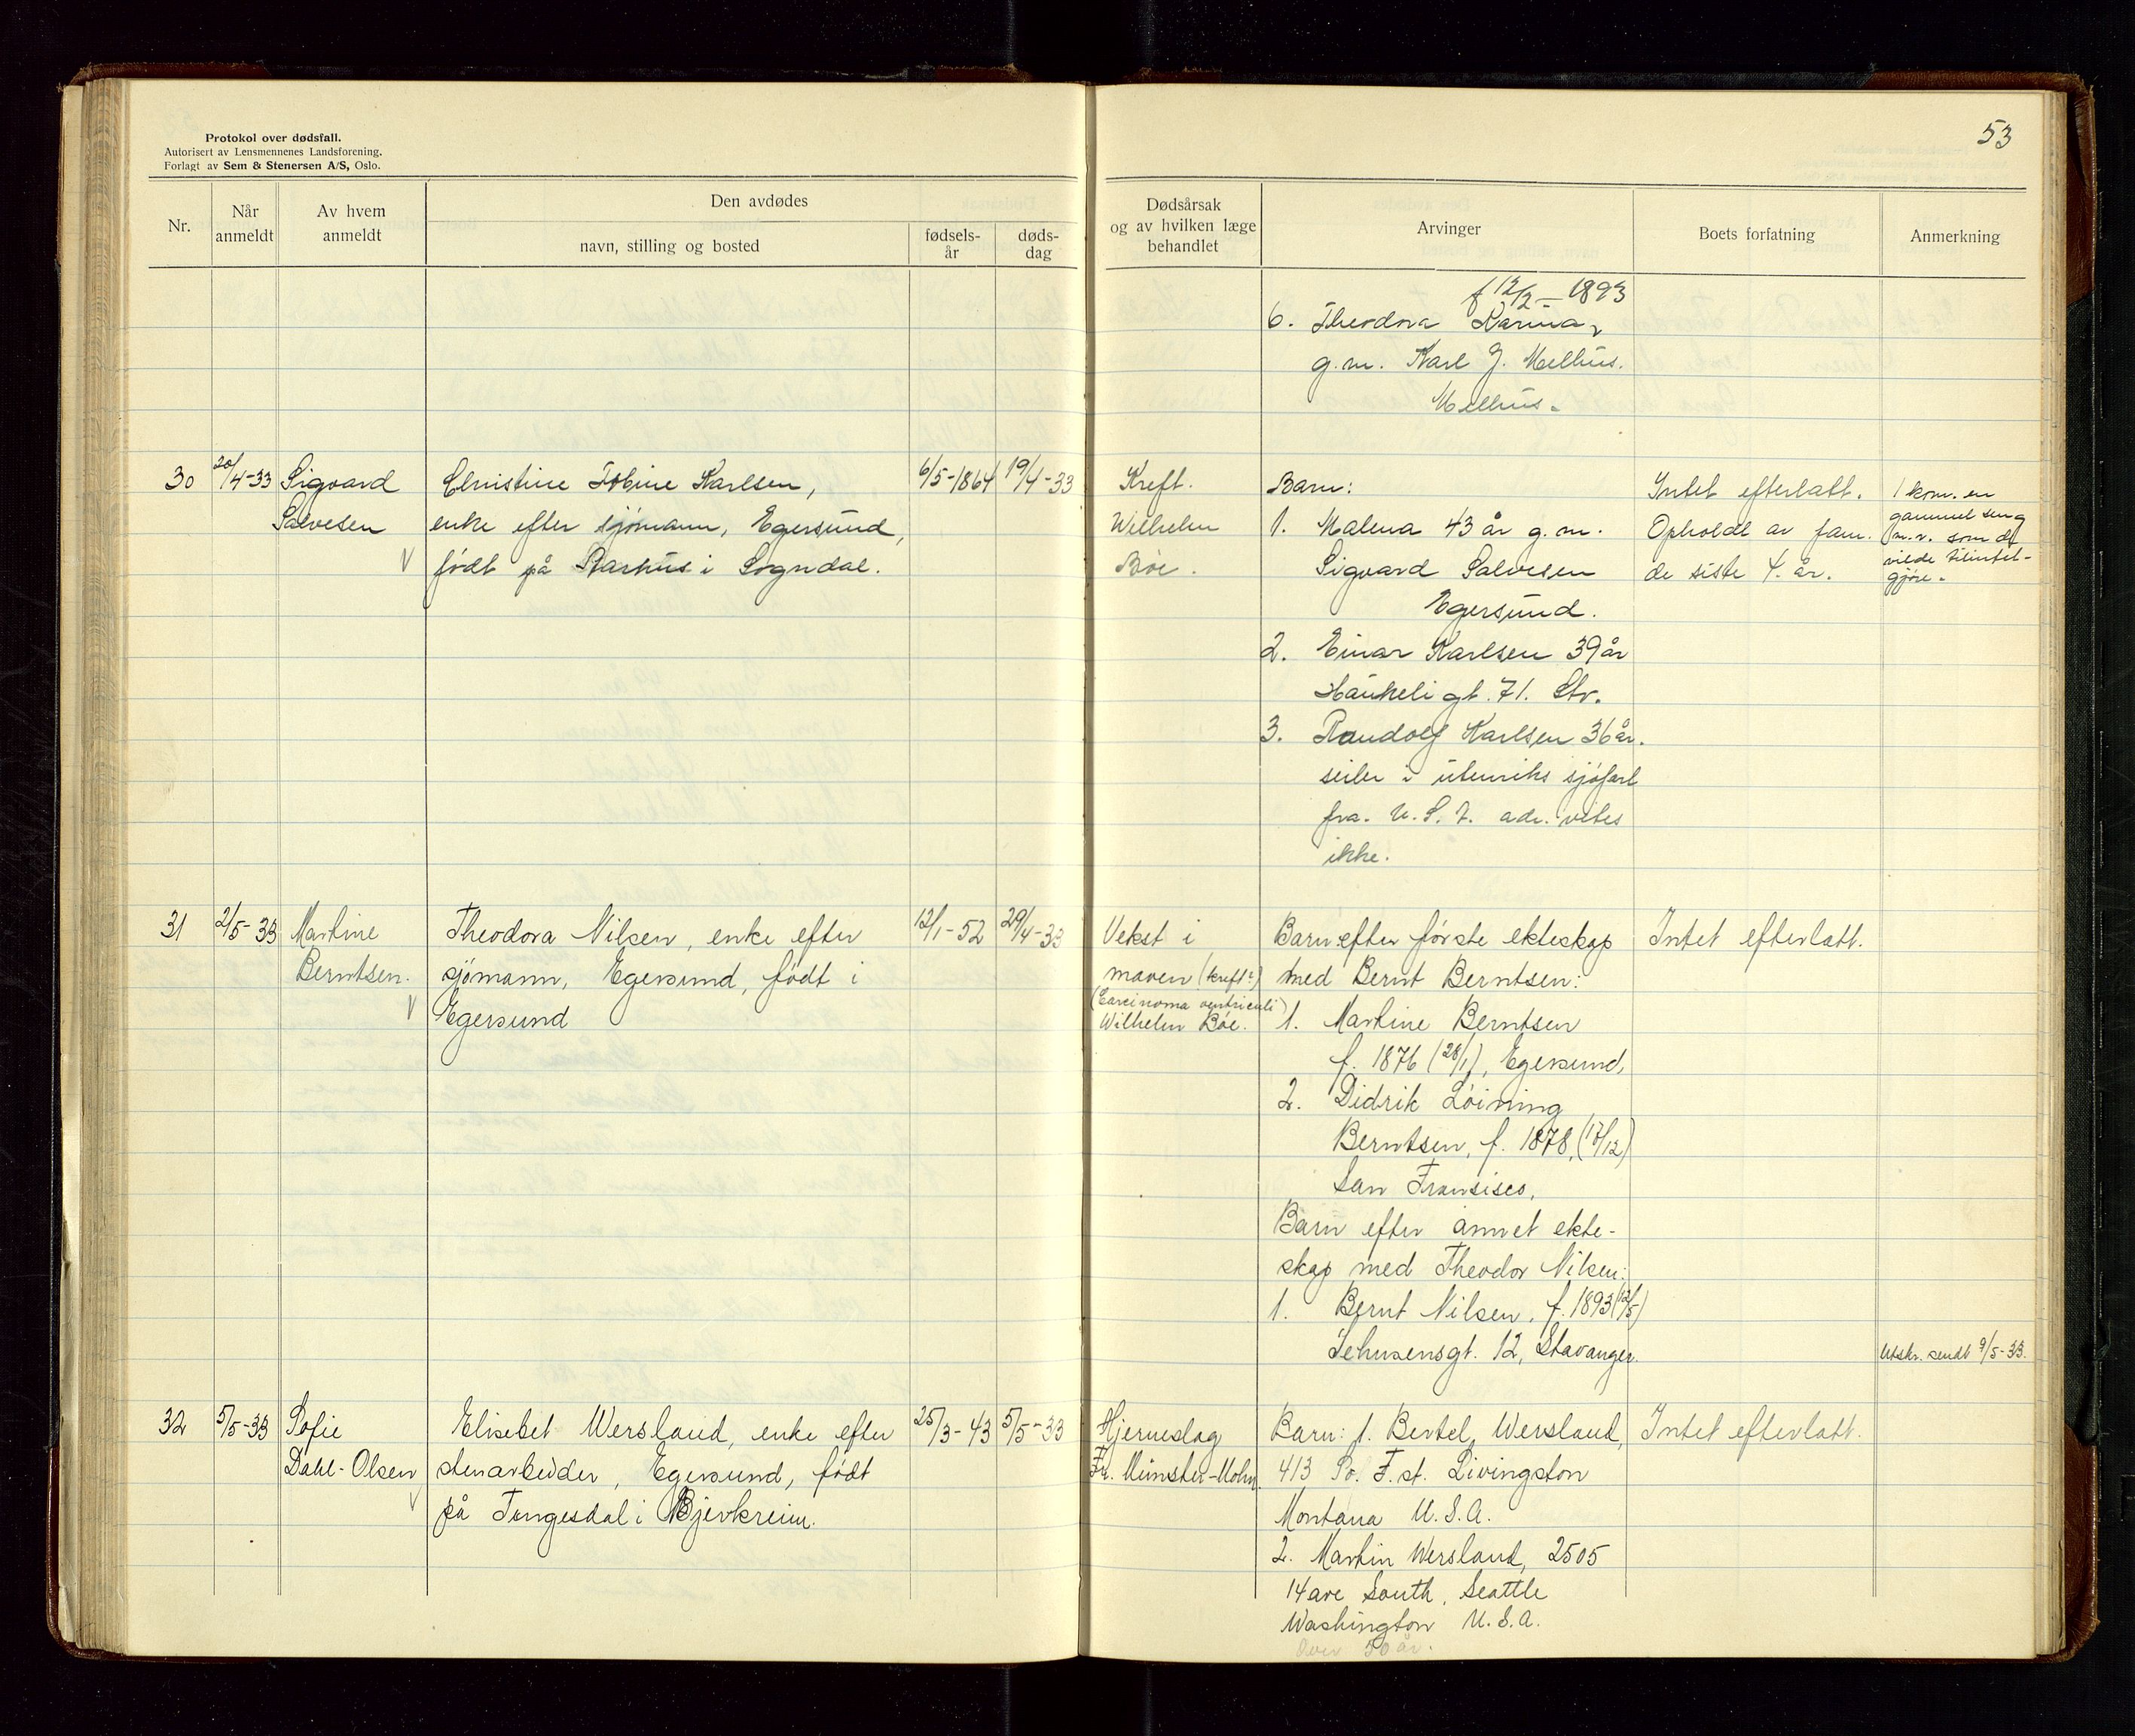 Protokol over dødsfall.
Autorisert av Lensmennenes Landsforening.
Forlagt av Sem & Stenersen A/S, Oslo.
53
Nr.
Når anmeldt
Av hvem anmeldt
Den avdødes
navn, stilling og bosted
fødsels-år
døds-dag
Dødsårsak
og av hvilken læge
behandlet
Arvinger
Boets forfatning
Anmerkning
f 12/2 - 1893
6. Theodora Karina,
g.m. Karl J. Mellhus.
Mellhus.
30
20/4-33
Sigvard
Salvesen
Christine Tobine Karlsen,
enke efter sjømann, Egersund,
født på Rarhus i Sogndal.
6/5-1864
19/4-33
Kreft.
Wilhelm
Bøe.
Barn:
1. Malena 43 år g.m.
Sigvard Salvesen
Egersund.
2. Einar Karlsen 39 år
Haukeli gt. 71. Stv.
3. Randolf Karlsen 36 år.
seiler i utenriks sjøfart
fra. U.S. adr. vites
ikke.
Intet efterlatt.
Opholdt av fam.
de siste 4. år.
1 kom. en
gammel seng
m.v. som de
vilde tilintet-
gjøre.
31
2/5-33
Martine
Berntsen.
Theodora Nilsen, enke efter
sjömann, Egersund, född i
Egersund
12/1-52
29/4-33
Vekst i
maven (kreft?)
(Carcinoma ventriculi)
Wilhelm Bøe.
Barn efter første ekteskap
med Bernt Berntsen:
1. Martine Berntsen
f. 1876 (28/1), Egersund,
2. Didrik Løining
Berntsen, f. 1878, (17/12)
San Fransisco,
Barn efter annet ekte-
skap med Theodor Nilsen:
1. Bernt Nilsen, f. 1893 (12/5)
Jehusensgt. 12, Stavanger.
Intet efterlatt.
Utskr. sendt 9/5-33.
32
5/5-33
Sofie
Dahl-Olsen
Elisebet Wersland, enke efter
stenarbeider, Egersund, født
på Tengesdal i Bjerkreim.
25/3-43
5/5-33
Hjerneslag
Fr. Münster-Mohn.
Barn: 1. Bertel Wersland,
413 So. F. st. Livingston
Montana U.S.A.
2. Martin Wersland, 2505
14 ave South, Seattle
Washington U.S.A.
Over 50 år.
Intet efterlatt.